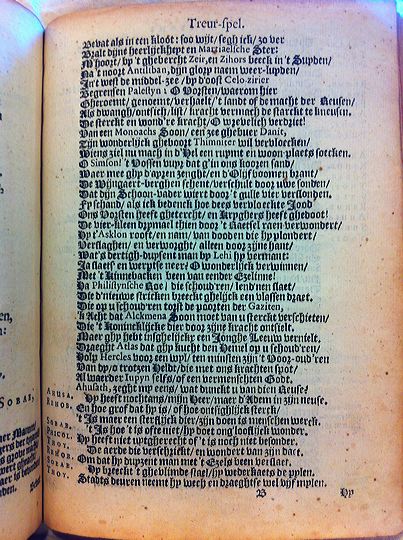 Treur-spel.
Bevat als in een kloot: soo wijt/ segh ick/ so ver
Bralt dijne heerlijckheyt en Martiaelsche Ster:
't noort/ by 't ghebercht Zeir, en Zihors beeck in 't Suyden/
Na 't noort Antiliban, dijn glory naem weer-luyden/
In 't west de middel-zee / by d'oost Celo-zirier
Begrensen Palestyn: O Vorsten/ waerom hier
Gheroemt / genoemt / verhaelt / 't landt of de macht der Reusen/
Als dwangh/ onsich/ list/ kracht vermach de starckt te kneusen.
De sterckt en wond're kracht/ O wreedelich verdriet!
Van een Monoachs Soon/ een zee ghebuer Danit,
Zijn wonderlijck gheboort Thimniter wil verbloecken/
Wiens ziel nu mach in d'Hel een rupmt en woon-plaets soecken.
O Simson! 't Vossen vuyr dat g'in ons kooren sand/
Waer mee ghy d'aprzen zenght/ en d'Olijf voomen brant/
De Wijngaert-berghen schent/ verschult door uwe sonden/
Dat dijn Schoon-vader wiert door 't gulle vier verslonden.
Fy schand/ als ick bedenck hoe dees verbloeckte Jood
Ons Vorsten heeft ghetercht/ en Kryghers heeft ghedoot!
De vier-kleen drymael thien door 't Raetsel raen verwondert/
Hy t'Asklon rooft/ en nam/ van dooden die hy plondert/
Verslaghen/ en verworght/ alleen door zijne hant/
War's dertigh-duysent man by Lehi hy vermant:
Ja slaet en werptse neer! O wonderlijck verwinnen/
Met 't Kinnebacken been van eender Ezelinne!
Ha Philistynsche Rot/ die schoud'ren/ lend'nen slaet/
Die d'nieuwe stricken breeckt ghelijck een vlassen draet.
Die op u schoud'ren torst de poorten der Gaziten,
'k Acht dat Alckmena Soon moet van u sterckt verschieten/
Die 't Konincklijcke bier door zijne kracht ontsielt.
Maer ghy hebt insghelijckx een Jonghe Leeuw vernielt.
Draeght Atlas dat ghy kucht den Hemel op u schoud'ren/
Holp Hercles voor een wyl/ ten minsten zijn 't Voor-oud'ren
Van dy/ o trotzen Helt/ die met ons krachten spot/
Al waerder Iupyn self/ of een vermenschten Godt.
ARUSA, Ahusath, zeght my eens/ wat dunckt u van dien Reuse?
REHOB, Hy heeft nochtans/ mijn Heer/ maer d'Adem in zijn neuse.
En hoe grof dat hy is/ of hoe onsighlijck sterck/
SOBAB, 't Is maer een sterflijck dier/ zijn doen is menschen werck.
PHICOL, 't Is hoe 't is oft niet/ hy doet ongloof'lijck wonder.
TROY, Hy heeft niet uytgherecht of 't is noch niet besonder.
REHOB, De aerde die verschrickt/ en wondert van zijn daet.
SOBAB, Om dat hy duysent man met 't Ezels been verslaet.
TROY, Hy breeckt 't ghevlimde stael/ hy wederkaets de pylen.
Stadts deuren neemt hy wech en draeghtse wel vijf mylen.
B Hy
SOBAB,